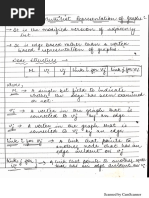 Multilist Representation of graph:-
→ It is the modified version of adjacency
list.
→ It is edge based rather than a vertex
based representation of graphs.
Node structure →
M Vi Vj link i for Vi link j for Vj
where,
M → A single bit field to indicate
whether the edge has been examined
or not.
Vi → A vertex in the graph that is
connected to vertex Vj by an
edge.
Vj → A vertex in the graph that is
connected to vertex Vi by an
edge.
Link i for Vi → A link that points to another node
that has an edge incident on Vi
Link j for → A link that points to another node
has an edge incident on
Scanned by CamScanner